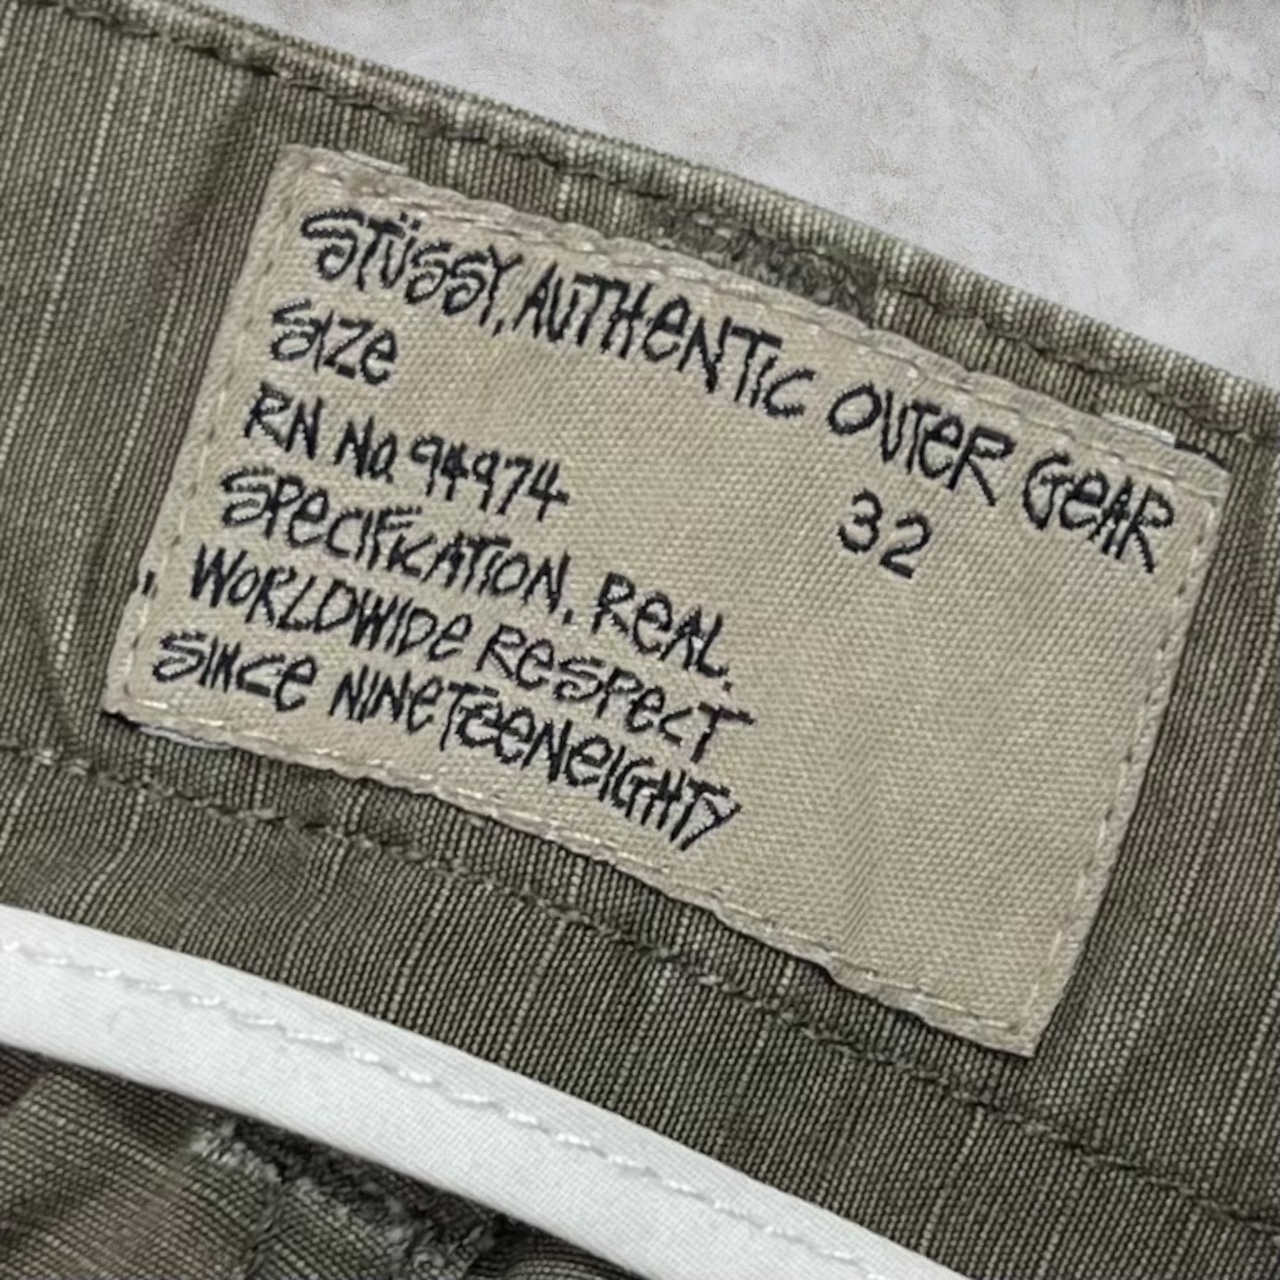 STÜSSY, AUTHENTIC OUTER GEAR
SIZE 32
RN No. 94974
SPECIFICATION. REAL.
WORLDWIDE RESPECT
SINCE NINETEENEIGHTY